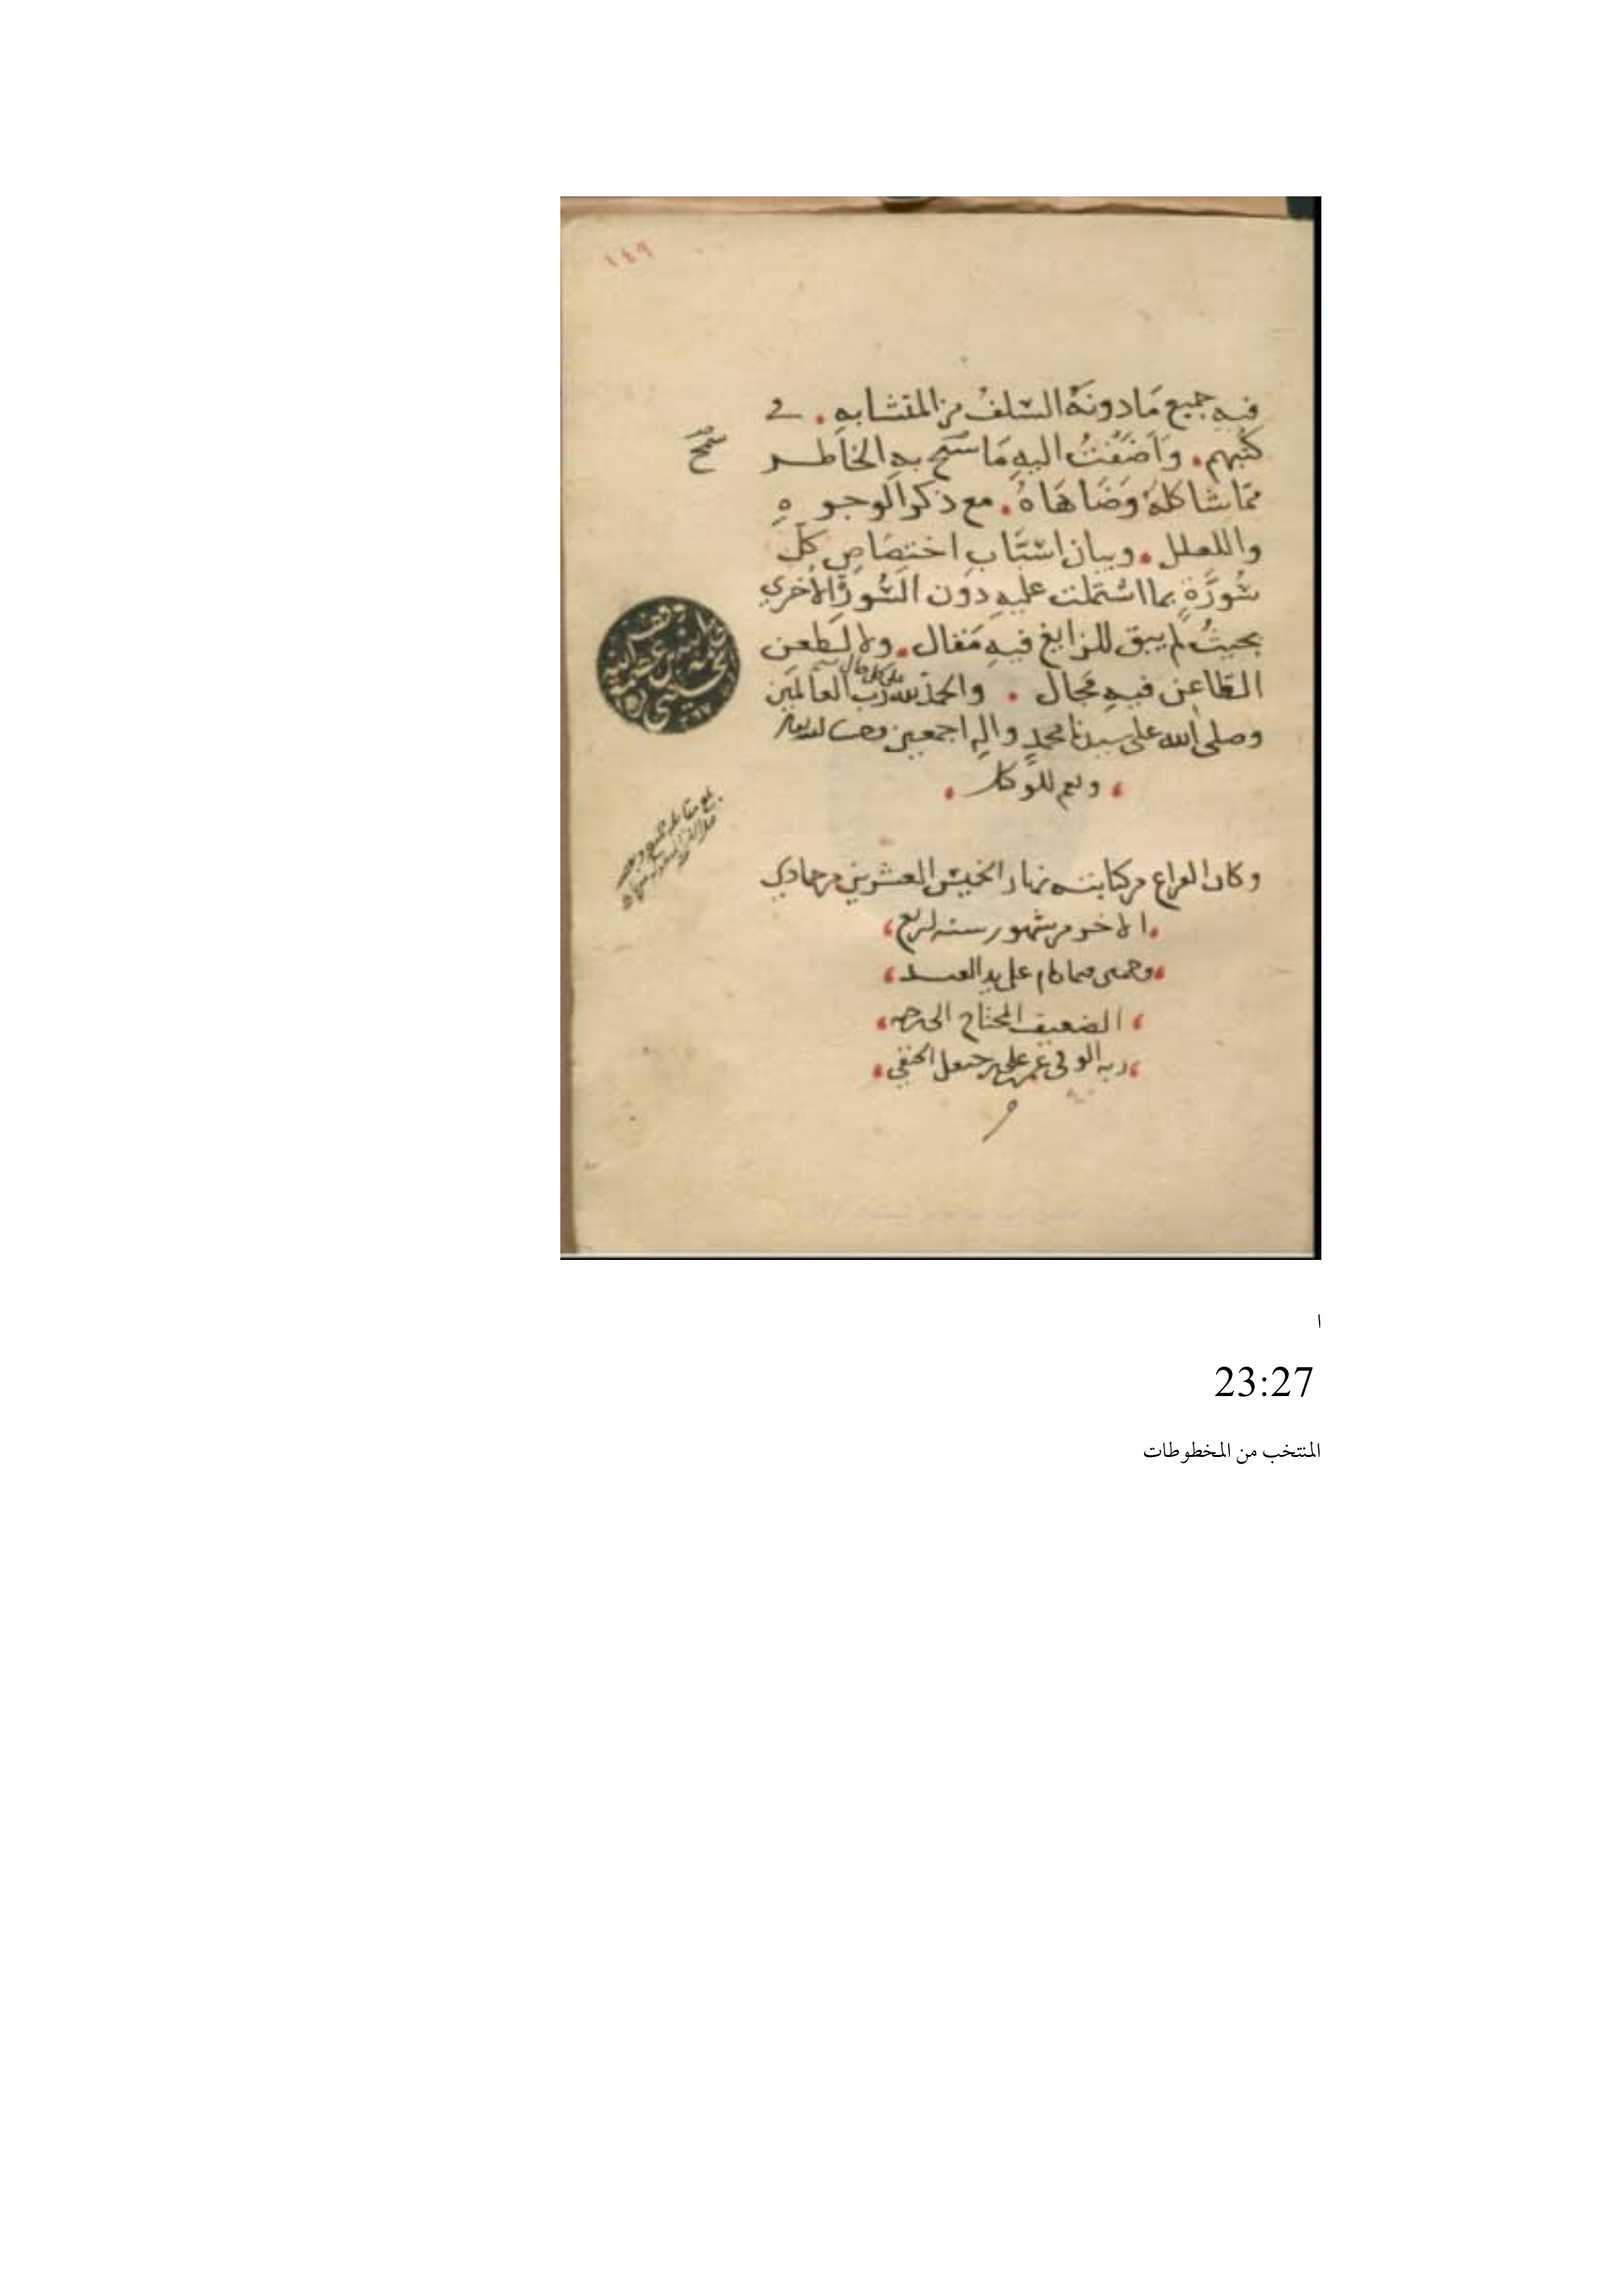 ١٤٩
فيه جميع مَا دونَهُ السّلفْ من المتشابهِ . في
كتبهم . وَاَضَفْتُ اليهِ مَا سَمَح بهِ الخاطر
ممّا شاكلهُ وَضَاهَاهُ . مع ذكر الوجوهِ
واللعلل . وبيان اسْبَابِ اختصَاصِ كلّ
سُورَةٍ بما اشتملت عليهِ دون السُورة الأخري
بحيثُ لم يبق للزايغ فيهِ مَقال . ولا لطعن
الطّاعِن فيهِ مجَال . والحمد لله ربّ العالمين
على كل حال
وصلى الله على سيدنا محمدٍ والهِ اجمعين
ونعم الوكيل
وكان الفراغ من كتابته نهار الخميس العشرين من جمادي
الاخر من شهور سنه اربع
على يد العبد
الضعيف المحتاج الى رحمه
ربه الوفي عمر بن علي بن الحنفي
سمح
بلغ مقابله
ا
23:27
المنتخب من المخطوطات